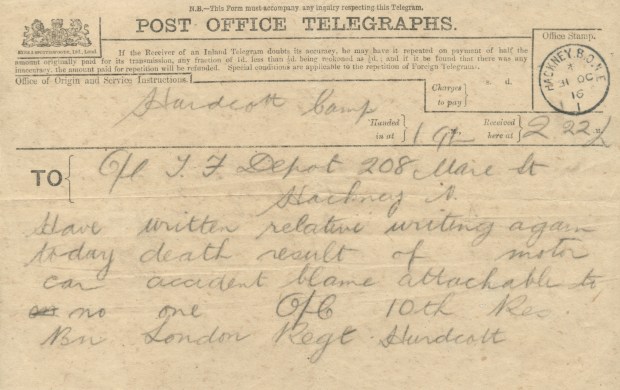 N.B.—This Form must accompany any inquiry respecting this Telegram.
POST OFFICE TELEGRAPHS.
If the Receiver of an Inland Telegram doubts its accuracy, he may have it repeated on payment of half the
amount originally paid for its transmission, any fraction of 1d. less than ½d. being reckoned as ½d.; and if it be found that there was any
inaccuracy, the amount paid for repetition will be refunded. Special conditions are applicable to the repetition of Foreign Telegrams.
Office Stamp.
HACKNEY.B.O. N.E
31 OC
16
Office of Origin and Service Instructions.
Charges
to pay
d.
Hurdcott Camp
Handed
in at
Received
here at
2 22
TO
O/C T. F. Depot 208 Mare St
Hackney N.
Have written relative writing again
today death result of motor
car accident blame attachable to
no one O/C 10th Res
Bn London Regt Hurdcott